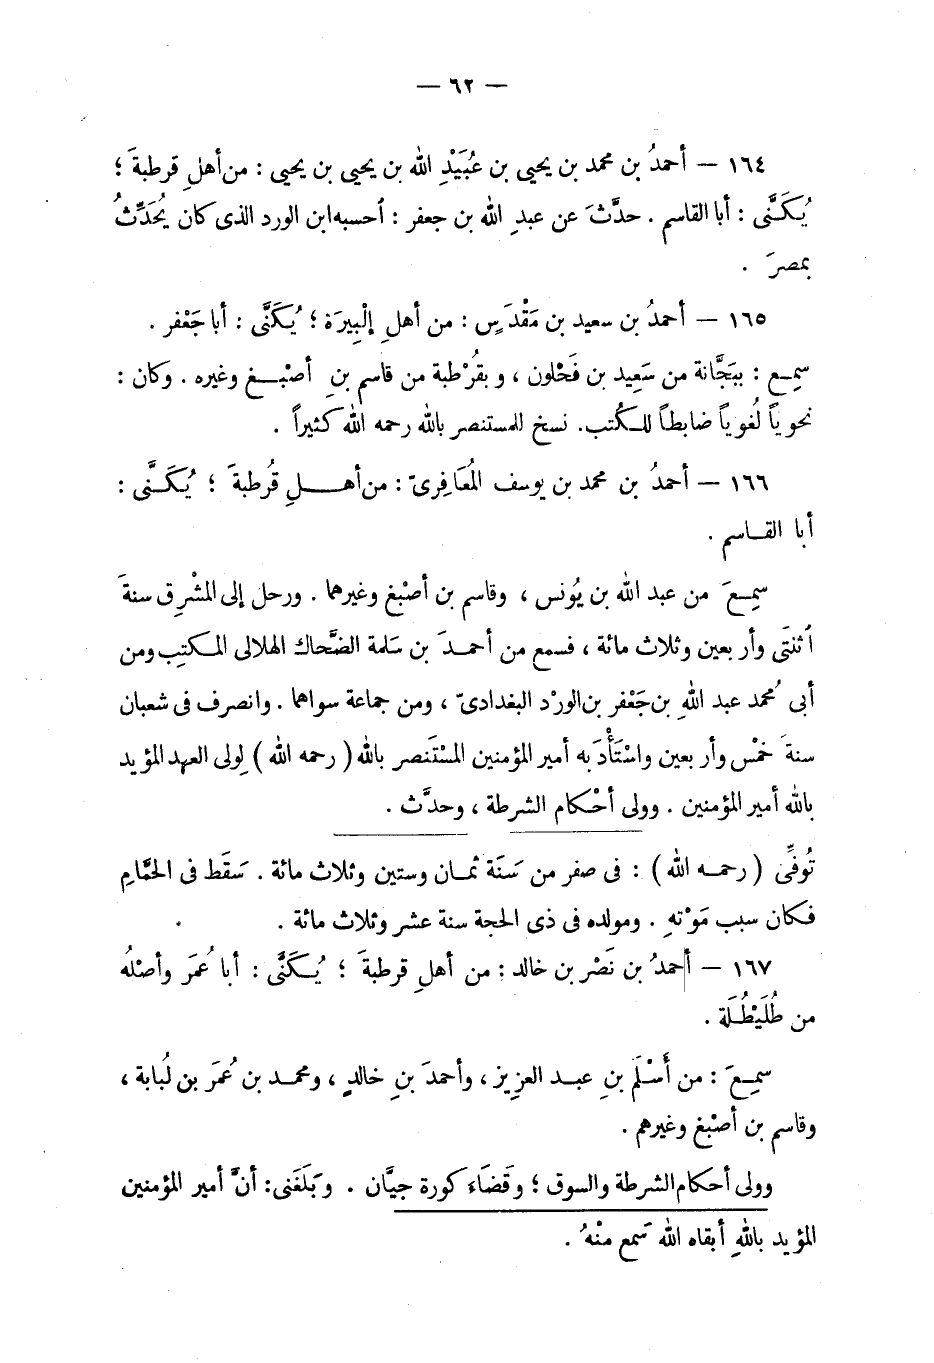 — ٦٢ —
١٦٤ — أحمدُ بن محمد بن يحيى بن عُبَيْدِ الله بن يحيى بن يحيى : من أهلِ قرطبةَ ؛
يُكَنَّى : أبا القاسم . حدَّثَ عن عبدِ الله بن جعفر : أحسبه ابن الورد الذى كان يُحَدِّثُ
بمصرَ .
١٦٥ — أحمدُ بن سعيد بن مَقْدَسٍ : من أهلِ إلْبِيرَة ؛ يُكَنَّى : أبا جَعْفر .
سمِع : ببَجَّانة من سَعِيد بن فَحْلون ، و بقُرْطبة من قاسم بنِ أصْبغ وغيره . وكان :
نحوياً لُغوياً ضابطاً للكُتب. نسخ للمستنصر بالله رحمه الله كثيراً .
١٦٦ — أحمدُ بن محمد بن يوسف المُعَافِرىّ : من أهلِ قُرطبةَ ؛ يُكَنَّى :
أبا القاسم .
سمِعَ من عبد الله بن يُونس ، وقاسم بن أصْبغ وغيرهما . ورحل إلى المشْرِق سنةَ
ٱثنتَى وأربعين وثلاث مائة ، فسمع من أحمدَ بن سَلمة الضَّحاك الهلالى المكتِب ومن
أبى محُمد عبد اللهِ بن جَعْفر بن الورْد البغدادىّ ، ومن جماعة سواهما . وانصرف فى شعبان
سنةَ خمْس وأربعين واسْتَأْدَبه أمير المؤمنين المسْتَنصر بالله ( رحمه الله ) لِولى العهد المؤيد
بالله أمير المؤمنين . وولى أحْكام الشرطة ، وحدَّث .
تُوفِّى ( رحمه الله ) : فى صفر من سَنَة ثمان وستين وثلاث مائة . سَقَط فى الحمَّامِ
فكان سبب مَوْتهِ . ومولده فى ذى الحجة سنة عشر وثلاث مائة .
١٦٧ — أحمدُ بن نَصْر بن خالد : من أهلِ قرطبةَ ؛ يُكَنَّى : أبا عُمَر وأصْلهُ
من طُلَيْطُلَة .
سمِعَ : من أَسْلَم بنِ عبد العزِيز ، وأحمدَ بنِ خالدٍ ، ومحمد بن عُمَر بن لُبابة ،
وقاسم بن أصْبغ وغيرهم .
وولى أحكام الشرطة والسوق ؛ وقَضَاء كورة جيَّان . وبَلَغَنى: أنَّ أمير المؤمنين
المؤيد باللهِ أبقاه الله سَمع منْهُ .